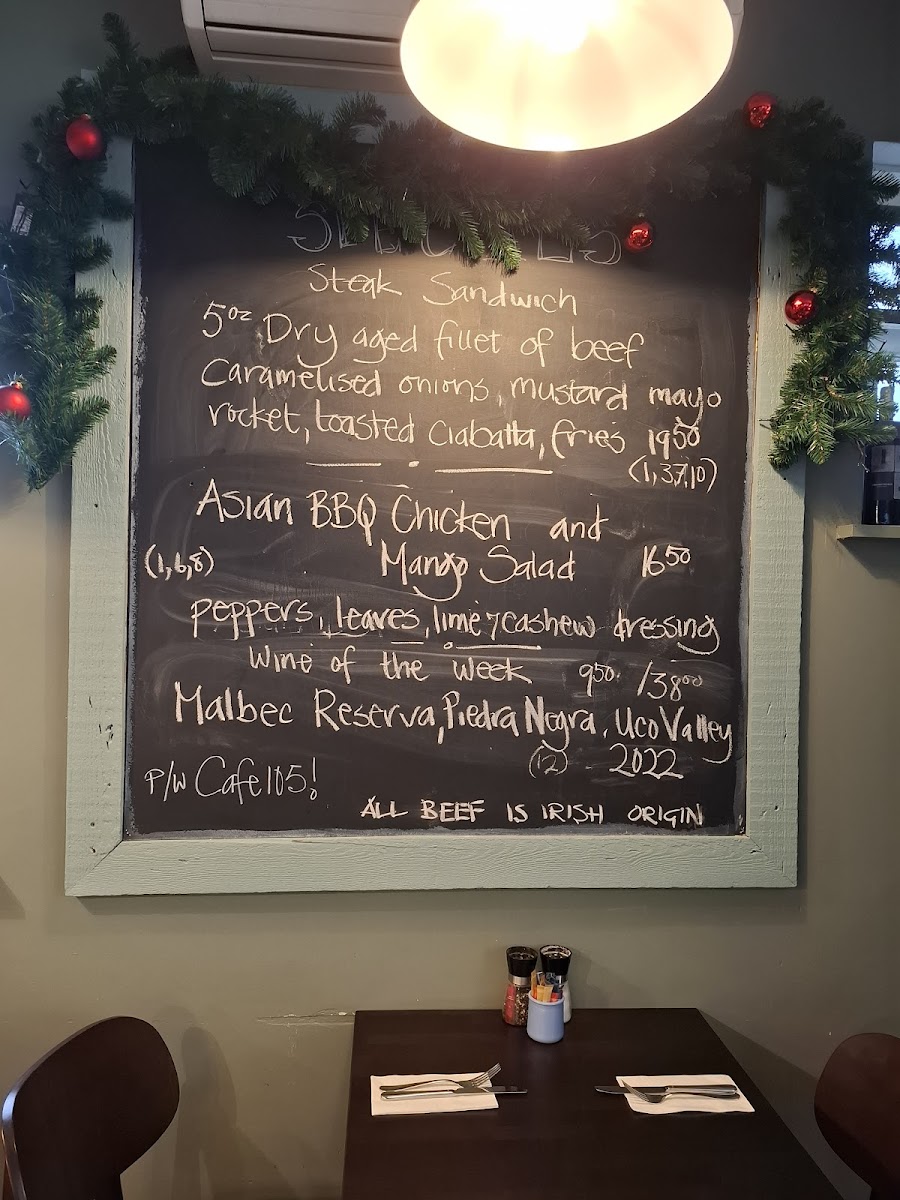 SPECIALS
Steak Sandwich
5oz Dry aged fillet of beef
Caramelised onions, mustard mayo
rocket, toasted Ciabatta, fries 1950
(1,3,7,10)
Asian BBQ Chicken and
(1,6,8) Mango Salad 1650
peppers, leaves, lime & cashew dressing
Wine of the week 950 / 3800
Malbec Reserva, Piedra Negra, Uco Valley
(12) - 2022
P/W Cafe105!
ALL BEEF IS IRISH ORIGIN